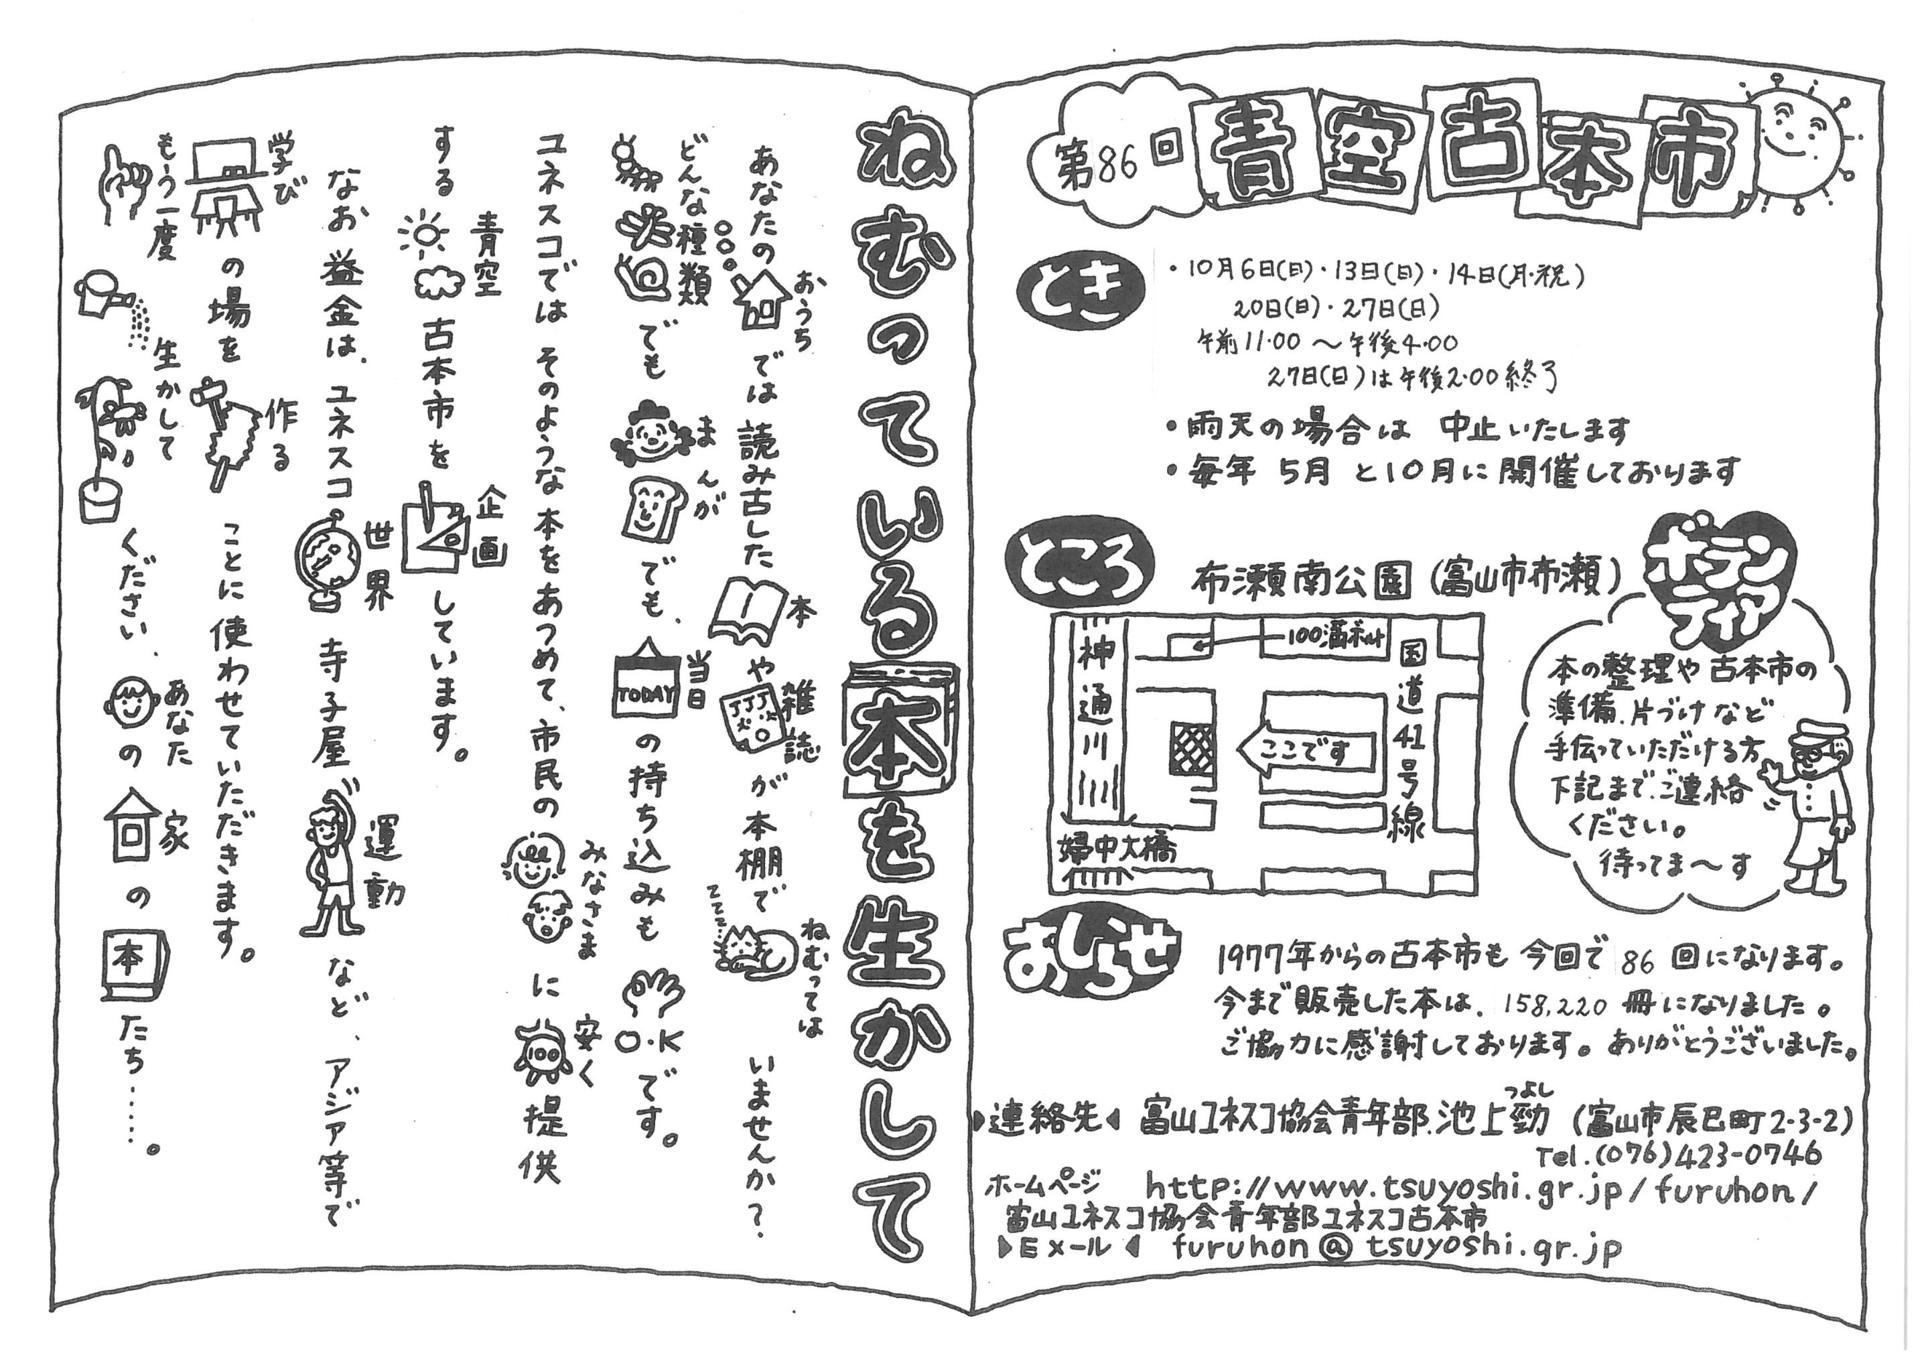 第86回 青空古本市
とき
・10月6日(日)・13日(日)・14日(月・祝)
20日(日)・27日(日)
午前11:00 〜午後4:00
27日(日)は午後2:00終了
・雨天の場合は 中止いたします
・毎年 5月 と10月に開催しております
ところ
布瀬南公園(富山市布瀬)
神通川
100満ボルト
国道41号線
ここです
婦中大橋
ボランティア
本の整理や古本市の
準備、片づけなど
手伝っていただける方
下記まで、ご連絡
ください。
待ってま〜す
おしらせ
1977年からの古本市も 今回で 86 回になります。
今まで販売した本は、158,220 冊になりました。
ご協力に感謝しております。ありがとうございました。
連絡先 富山ユネスコ協会青年部、池上勁(富山市辰巳町2-3-2)
つよし
Tel.(076)423-0746
ホームページ http://www.tsuyoshi.gr.jp/furuhon/
富山ユネスコ協会青年部ユネスコ古本市
Eメール furuhon@tsuyoshi.gr.jp
ねむっている本を生かして
あなたのおうちでは読み古した本や雑誌が本棚でねむってはいませんか?
zzzz...
どんな種類でもまんがでも、当日の持ち込みもO・Kです。
TODAY
ユネスコではそのような本をあつめて、市民のみなさまに安く提供
100
する青空古本市を企画しています。
なお益金は、ユネスコ世界寺子屋運動など、アジア等で
学びの場を作ることに使わせていただきます。
もう一度生かしてください、あなたの家の本たち……。